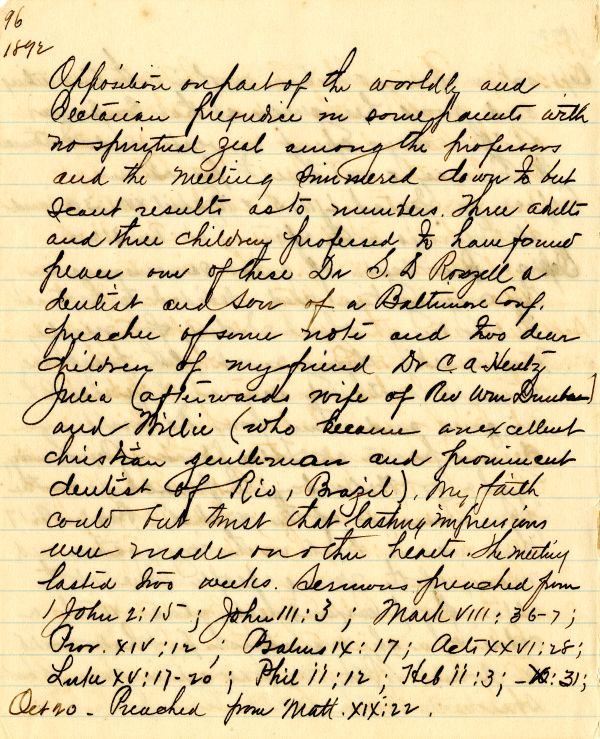 96
1892
Opposition on part of the worldly and
Sectarian prejudice in some parents with
no spiritual zeal among the professors
and the meeting simmered down to but
scant results as to numbers. Three adults
and three children professed to have found
peace one of these Dr S. S Roszell a
dentist and son of a Baltimore Conf.
preacher of some note and two dear
children of my friend Dr C. A. Hentz
Julia (afterwards wife of Rev Wm Dunbar)
and Willie (who became an excellent
christian gentleman and prominent
dentist of Rio, Brazil). My faith
could but trust that lasting impressions
were made on other hearts. The meeting
lasted two weeks. Sermons preached from
1 John 2:15; John III:3; Mark VIII:36-7;
Prov. XIV:12; Psalms IX:17; Acts XXVI:28;
Luke XV:17-20; Phil II:12; Heb II:3; - :31;
Oct 20 - Preached from Matt. XIX:22.